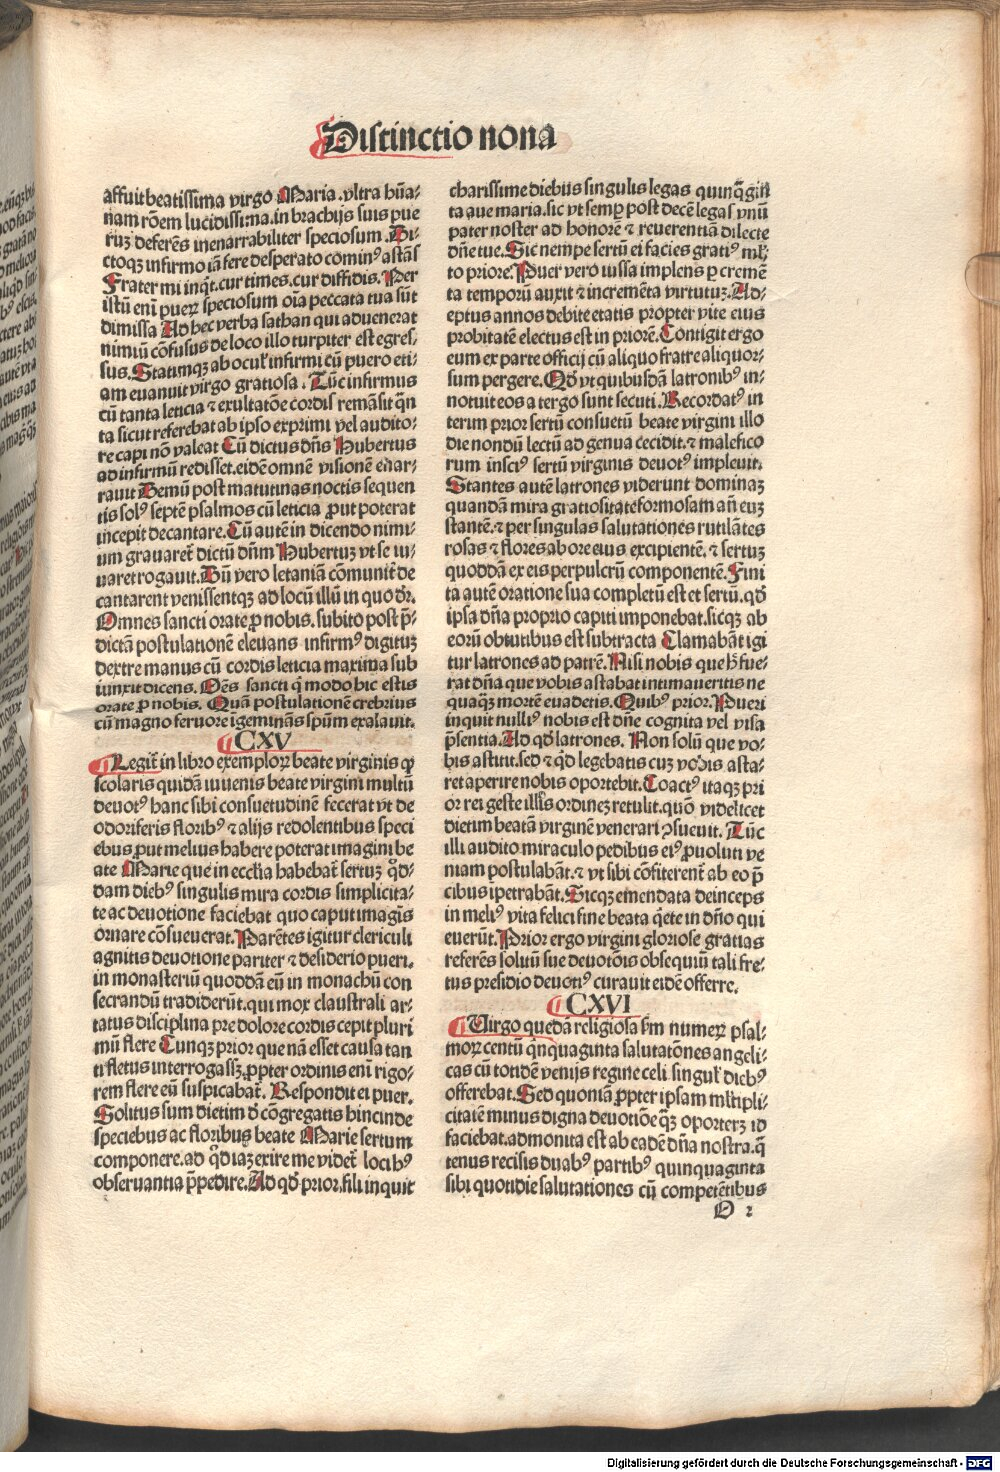 Distinctio nona
affuit beatissima virgo Maria .vltra hūa⸗
nam rōem lucidissima.in brachijs suis pue
ruꝫ deferēs inenarrabiliter speciosum .Di⸗
ctoqꝫ infirmo iā fere desperato cominꝰ astās
Frater mi inqͭt.cur times.cur diffidis. Per
istū eni puerꝫ speciosum oīa peccata tua sūt
dimissa Ad hec verba sathan qui aduenerat
nimiū cōfusus de loco illo turpiter est egres⸗
sus. Statimqꝫ ab oculꝭ infirmi cū puero eti⸗
am euanuit virgo gratiosa. Tūc infirmus
cū tanta leticia ⁊ exultatōe cordis remāsit qͣn
ta sicut referebat ab ipso exprimi vel audito⸗
re capi nō valeat Cū dictus dn̄s Hubertus
ad infirmū redisset.eidē omnē visionē enar⸗
rauit Demū post matutinas noctis sequen
tis solꝰ septē psalmos cū leticia ꝓut poterat
incepit decantare. Cū autē in dicendo nimi⸗
um grauaret̄ dictū dn̄m Hubertuꝫ vt se iu⸗
uaret rogauit. Dū vero letaniā cōmunit̄ de
cantarent venissentqꝫ ad locū illū in quo dr̄.
Omnes sancti orate ꝓ nobis. subito post p̄⸗
dictā postulationē eleuans infirmꝰ digituꝫ
dextre manus cū cordis leticia maxima sub
iunxit dicens. Oēs sancti qͦ modo hic estis
orate ꝓ nobis. Quā postulationē crebrius
cū magno feruore igeminās spūm exalauit.
CXV
Legit̄ in libro exemploꝝ beate virginis qͥ
scolaris quidā iuuenis beate virgini multū
deuotꝰ hanc sibi consuetudinē fecerat vt de
odoriferis floribꝰ ⁊ alijs redolentibus speci
ebus ꝓut melius habere poterat imagini be
ate Marie que in ecclīa habebat̄ sertuꝫ qͦd⸗
dam diebꝰ singulis mira cordis simplicita⸗
te ac deuotione faciebat quo caput imagīs
ornare cōsueuerat. Parētes igitur clericuli
agnitis deuotione pariter ⁊ desiderio pueri.
in monasteriū quoddā eū in monachū con
secrandū tradiderūt.qui mox claustrali ar⸗
tatus disciplina pre dolore cordis cepit pluri
mū flere Cunqꝫ prior que nā esset causa tan
ti fletus interrogassꝫ.ꝓpter ordinis eni rigo⸗
rem flere eū suspicabat̄. Respondit ei puer.
Solitus sum dietim d̄ cōgregatis hincinde
speciebus ac floribus beate Marie sertum
componere.ad qͦd iaꝫ exire me videt̄ locibꝰ
obseruantia p̄pedire. Ad qͦd prior.fili inquit
charissime diebus singulis legas quinqͣgin
ta aue maria.sic vt semꝑ post decē legas vnū
pater noster ad honorē ⁊ reuerentiā dilecte
dn̄e tue. Sic nempe sertū ei facies gratiꝰ ml̄⸗
to priore. Puer vero iussa implens ꝑ cremē
ta temporū auxit ⁊ incremēta virtutuꝫ. Ad⸗
eptus annos debite etatis propter vite eius
probitatē electus est in priorē. Contigit ergo
eum ex parte officij cū aliquo fratre aliquor⸗
sum pergere. Qd̄ vt quibusdā latronibꝰ in⸗
notuit eos a tergo sunt secuti. Recordatꝰ in
terim prior sertū consuetū beate virgini illo
die nondū lectū ad genua cecidit.⁊ malefico
rum insciꝰ sertū virginis deuotꝰ impleuit.
Stantes autē latrones viderunt dominaꝫ
quandā mira gratiositate formosam an̄ euꝫ
stantē.⁊ per singulas salutationes rutilātes
rosas ⁊ flores ab ore eius excipientē. ⁊ sertuꝫ
quoddā ex eis perpulcrū componentē. Fini
ta autē oratione sua completū est et sertū.qd̄
ipsa dn̄a proprio capiti imponebat.sicqꝫ ab
eorū obtutibus est subtracta Clamabāt igi
tur latrones ad patrē. Nisi nobis que hͦ fue⸗
rat dn̄a que vobis astabat intimaueritis ne
quaqͣꝫ mortē euadetis. Quibꝰ prior. Pueri
inquit nulliꝰ nobis est dn̄e cognita vel visa
p̄sentia. Ad qd̄ latrones. Non solū que vo⸗
bis astitit.sed ⁊ qd̄ legebatis cuꝫ vobis asta⸗
ret aperire nobis oportebit. Coactꝰ itaqꝫ pri
or rei geste illis ordineꝫ retulit.quō videlicet
dietim beatā virginē venerari ꝯsueuit. Tūc
illi audito miraculo pedibus eiꝰ ꝓuoluti ve
niam postulabāt.⁊ vt sibi cōfiterent̄ ab eo p̄
cibus ipetrabāt. Sicqꝫ emendata deinceps
in meliꝰ vita felici fine beata qͥete in dn̄o qui
euerūt. Prior ergo virgini gloriose gratias
referēs solitū sue deuotōis obsequiū tali fre⸗
tus presidio deuotiꝰ curauit eidē offerre.
CXVI
Uirgo quedā religiosa s̄m numeꝝ psal⸗
moꝝ centū qͥnquaginta salutatōnes angeli⸗
cas cū totidē venijs regine celi singulꝭ diebꝰ
offerebat. Sed quoniā ꝓpter ipsam ml̄tipli⸗
citatē minus digna deuotiōe qͣꝫ oporterꝫ id
faciebat.admonita est ab eadē dn̄a nostra.qͣ
tenus recisis duabꝰ partibꝰ quinquaginta
sibi quotidie salutationes cū competētibus
O 2
Digitalisierung gefördert durch die Deutsche Forschungsgemeinschaft - DFG